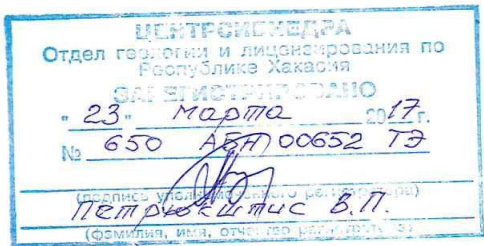 ЦЕНТРСИБНЕДРА
Отдел геологии и лицензирования по
Республике Хакасия
ЗАРЕГИСТРИРОВАНО
"23" марта 2017г.
№ 650 АБН 00652 ТЭ
(подпись уполномоченного регистратора)
В.П.
(фамилия, имя, отчество регистратора)